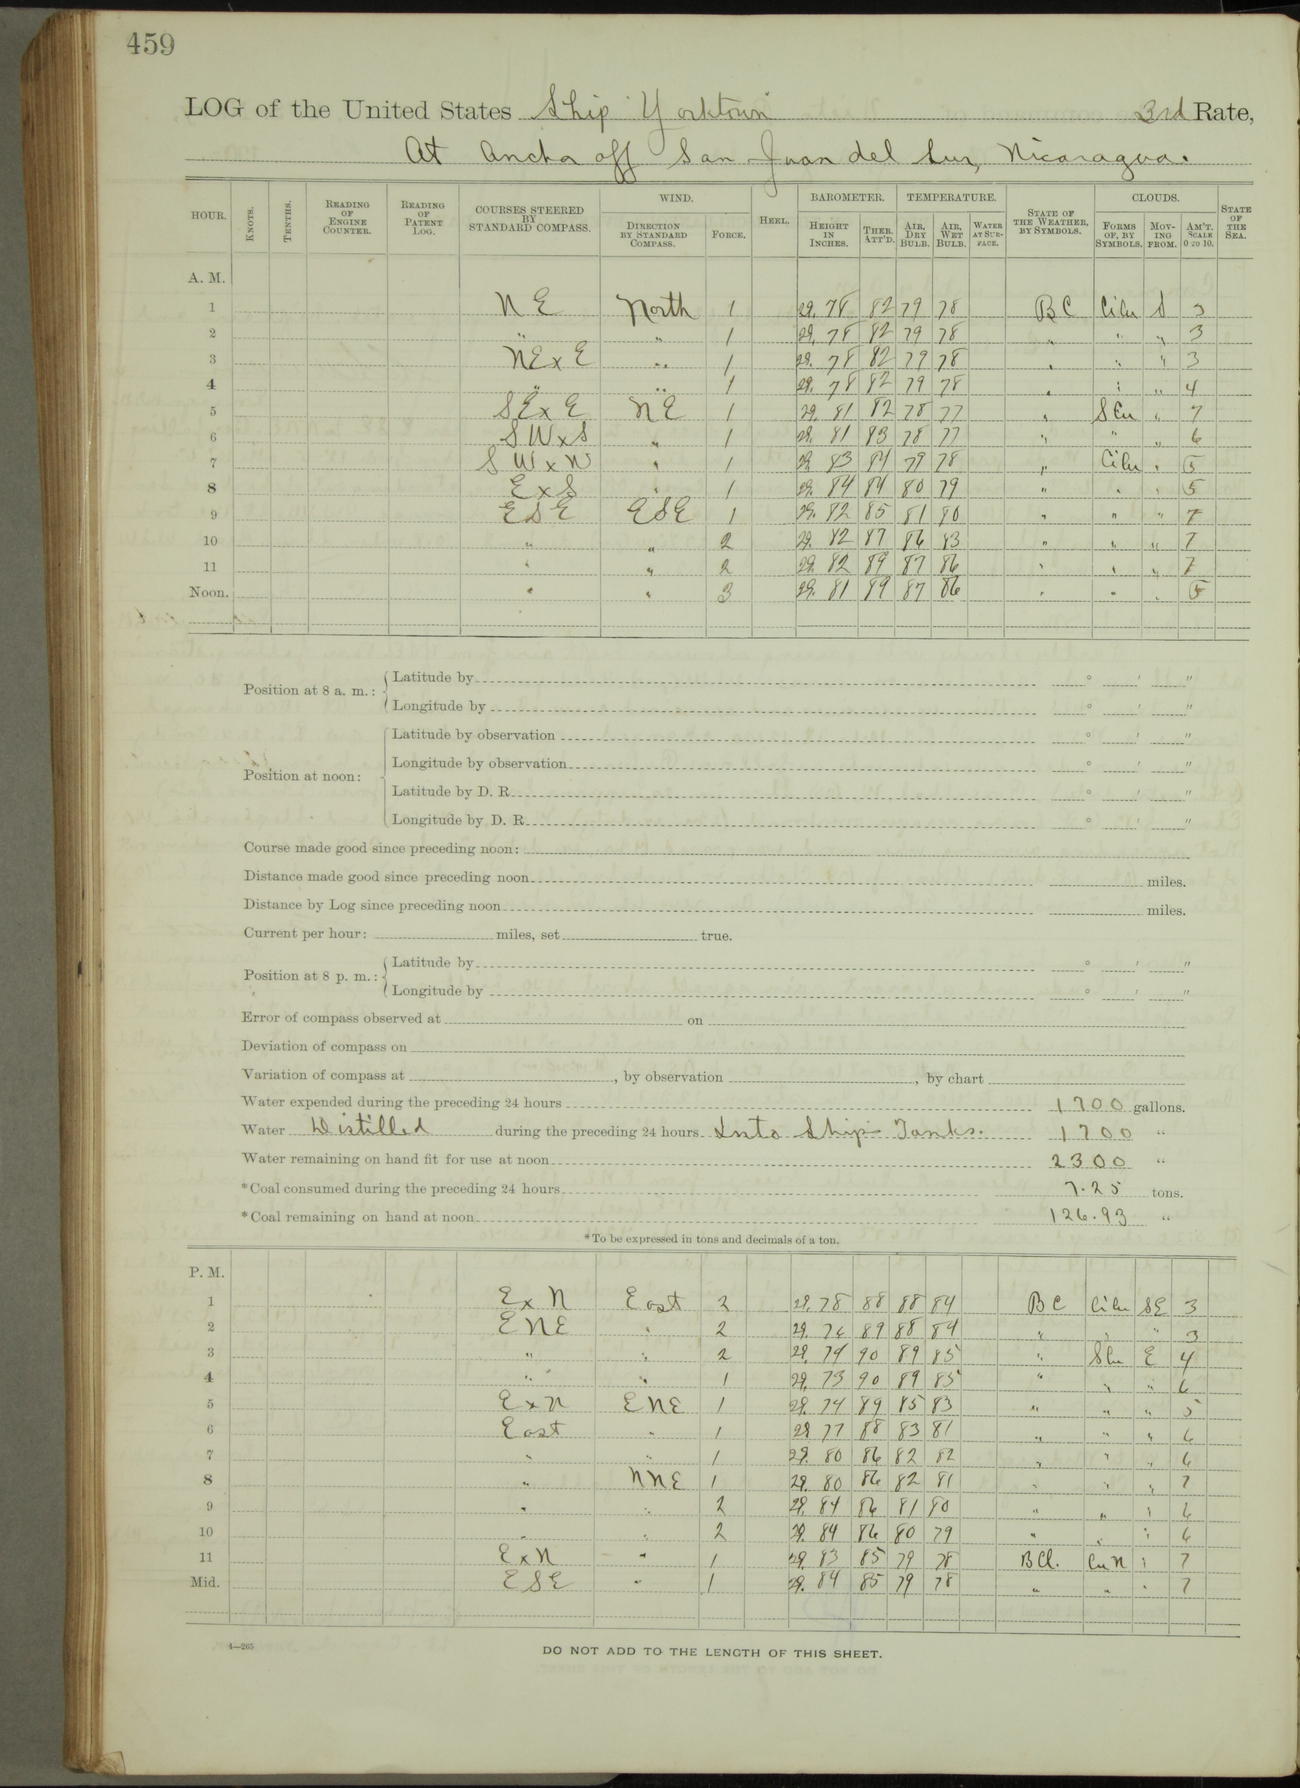 459
LOG of the United States Ship "Yorktown" 3rd Rate,
At Anchor off San Juan del Sur, Nicaragua.
HOUR. KNOTS. TENTHS. READING OF ENGINE COUNTER. READING OF PATENT LOG. COURSES STEERED BY STANDARD COMPASS. WIND. DIRECTION BY STANDARD COMPASS. FORCE. HEEL. BAROMETER. HEIGHT IN INCHES. THER. ATT'D. TEMPERATURE. AIR, DRY BULB. AIR, WET BULB. WATER AT SURFACE. STATE OF THE WEATHER, BY SYMBOLS. CLOUDS. FORMS OF, BY SYMBOLS. MOVING FROM. AM'T. SCALE 0 TO 10. STATE OF THE SEA.
A. M.
1 NE North 1 29.78 82 79 78 BC CiCu S 3
2 " " 1 29.78 82 79 78 " " " 3
3 NExE " 1 29.78 82 79 78 " " " 3
4 " " 1 29.78 82 79 78 " " " 4
5 SExE NE 1 29.81 82 78 77 " SCu " 7
6 SWxS " 1 29.81 83 78 77 " " " 6
7 SWxW " 1 29.83 84 79 78 " CiCu " 5
8 ExS " 1 29.84 84 80 79 " " " 5
9 ESE ESE 1 29.82 85 81 80 " " " 7
10 " " 2 29.82 87 86 83 " " " 7
11 " " 2 29.82 89 87 86 " " " 7
Noon. " " 3 29.81 89 87 86 " " " 5
Position at 8 a. m.: Latitude by ° ' "
Longitude by ° ' "
Position at noon: Latitude by observation ° ' "
Longitude by observation ° ' "
Latitude by D. R. ° ' "
Longitude by D. R. ° ' "
Course made good since preceding noon:
Distance made good since preceding noon miles.
Distance by Log since preceding noon miles.
Current per hour: miles, set true.
Position at 8 p. m.: Latitude by ° ' "
Longitude by ° ' "
Error of compass observed at on
Deviation of compass on
Variation of compass at , by observation , by chart
Water expended during the preceding 24 hours 1700 gallons.
Water Distilled during the preceding 24 hours Into Ship Tanks. 1700 "
Water remaining on hand fit for use at noon 2300 "
*Coal consumed during the preceding 24 hours 7.25 tons.
*Coal remaining on hand at noon 126.93 "
*To be expressed in tons and decimals of a ton.
P. M.
1 ExN East 2 29.78 88 88 84 BC CiCu SE 3
2 ENE " 2 29.76 89 88 84 " " " 3
3 " " 2 29.74 90 89 85 " SCu E 4
4 " " 1 29.73 90 89 85 " " " 6
5 ExN ENE 1 29.74 89 85 83 " " " 5
6 East " 1 29.77 88 83 81 " " " 6
7 " " 1 29.80 86 82 82 " " " 6
8 " NNE 1 29.80 86 82 81 " " " 7
9 " " 2 29.84 86 81 80 " " " 6
10 " " 2 29.84 86 80 79 " " " 6
11 ExN " 1 29.83 85 79 78 BCL. CuN " 7
Mid. ESE " 1 29.84 85 79 78 " " " 7
4—265
DO NOT ADD TO THE LENGTH OF THIS SHEET.